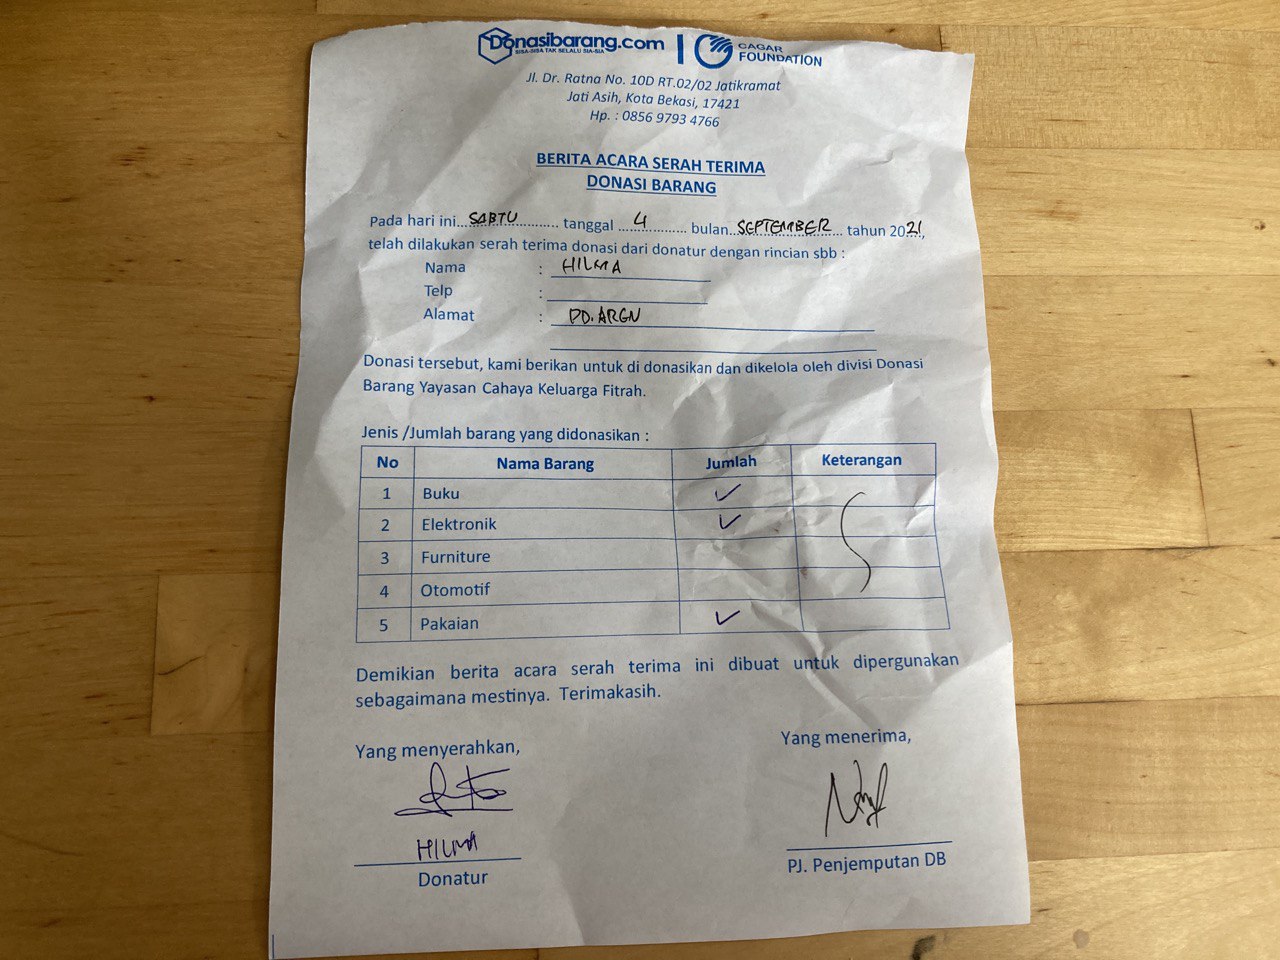 Donasibarang.com
SISA-SISA TAK SELALU SIA-SIA
CAGAR
FOUNDATION
Jl. Dr. Ratna No. 10D RT.02/02 Jatikramat
Jati Asih, Kota Bekasi, 17421
Hp. : 0856 9793 4766
BERITA ACARA SERAH TERIMA
DONASI BARANG
Pada hari ini...SABTU............ tanggal ....4............ bulan..SEPTEMBER... tahun 2021,
telah dilakukan serah terima donasi dari donatur dengan rincian sbb :
Nama : HILMA
Telp :
Alamat : PD. AREN
Donasi tersebut, kami berikan untuk di donasikan dan dikelola oleh divisi Donasi
Barang Yayasan Cahaya Keluarga Fitrah.
Jenis /Jumlah barang yang didonasikan :
No Nama Barang Jumlah Keterangan
1 Buku ✓
2 Elektronik ✓
3 Furniture
4 Otomotif
5 Pakaian ✓
Demikian berita acara serah terima ini dibuat untuk dipergunakan
sebagaimana mestinya. Terimakasih.
Yang menyerahkan, Yang menerima,
HILMA
Donatur PJ. Penjemputan DB